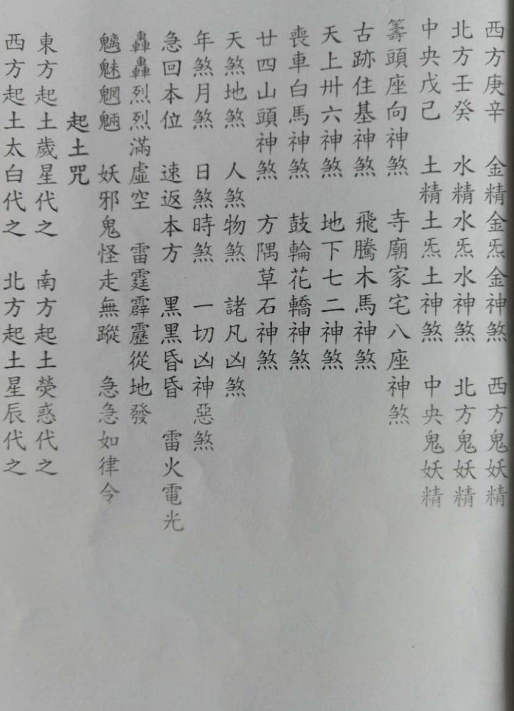 西方庚辛　金精金炁金神煞　西方鬼妖精
北方壬癸　水精水炁水神煞　北方鬼妖精
中央戊己　土精土炁土神煞　中央鬼妖精
籌頭座向神煞　寺廟家宅八座神煞
古跡住基神煞　飛騰木馬神煞
天上卅六神煞　地下七二神煞
喪車白馬神煞　鼓輪花轎神煞
廿四山頭神煞　方隅草石神煞
天煞地煞　人煞物煞　諸凡凶煞
年煞月煞　日煞時煞　一切凶神惡煞
急回本位　速返本方　黑黑昏昏　雷火電光
轟轟烈烈滿虛空　雷霆霹靂從地發
魑魅魍魎　妖邪鬼怪走無蹤　急急如律令
起土咒
東方起土歲星代之　南方起土熒惑代之
西方起土太白代之　北方起土星辰代之